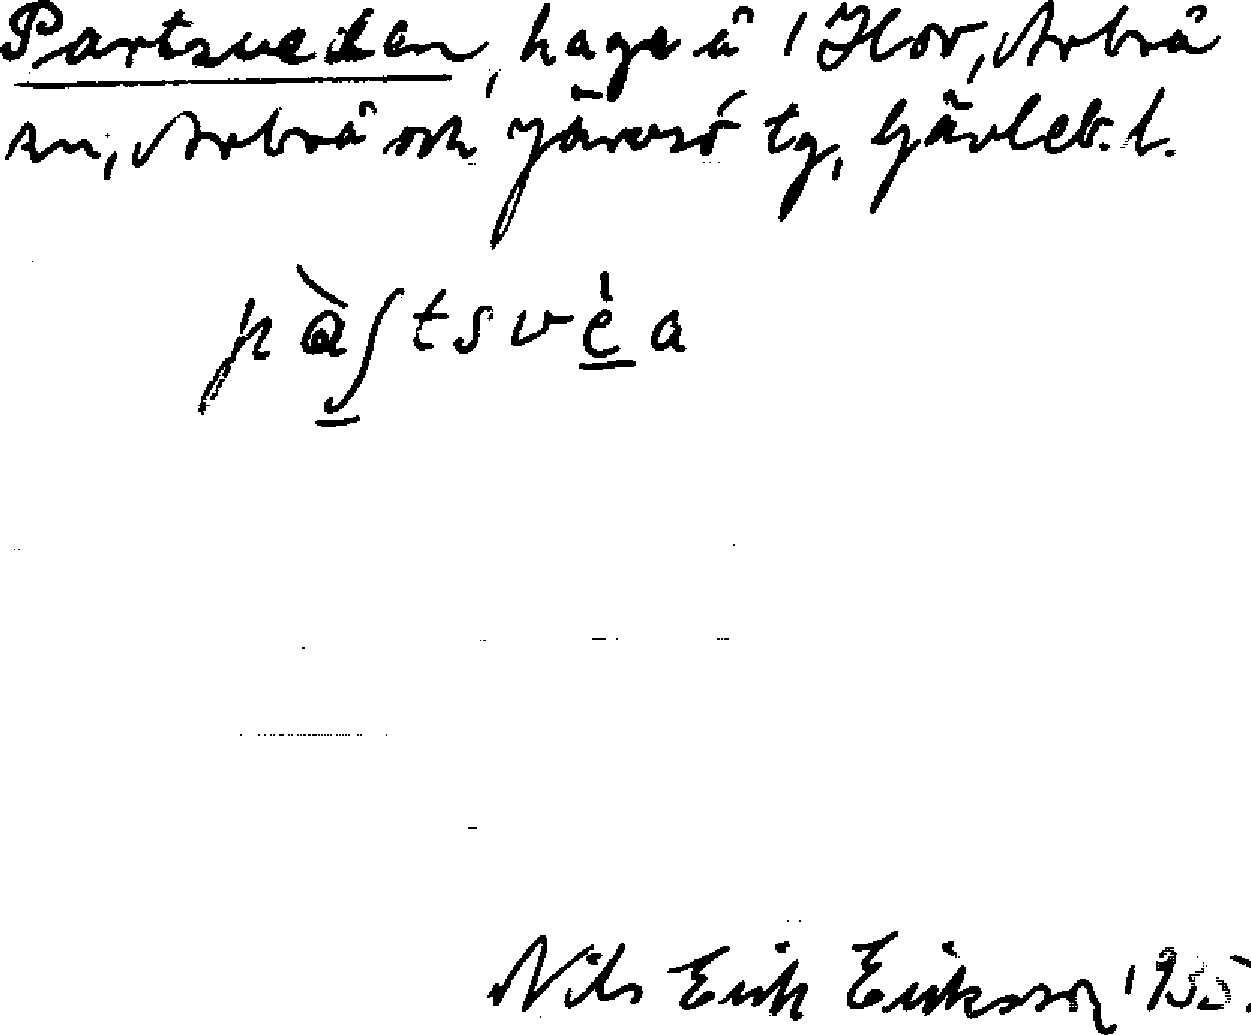 Partsveden, hage å 1 Hov, Arbrå
sn, Arbrå och Järvsö tg, Gävleb. l.
pàʃtsvèa
Nils Erik Eriksson 1935.